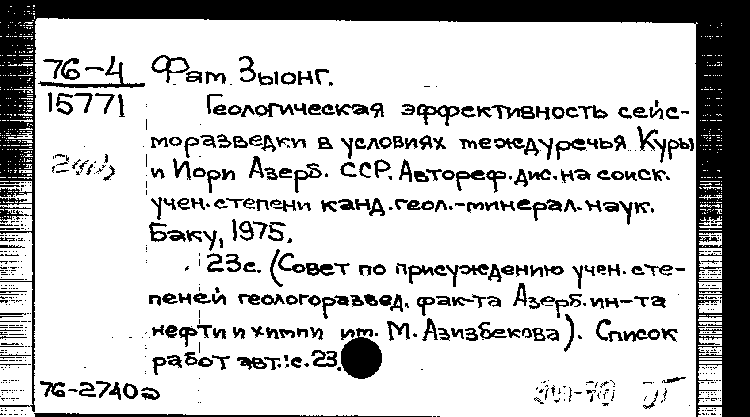 76-4 Фам Зыонг.
15771 Геологическая эффективность сейс-
моразведки в условиях междуречья Куры
и Иори Азерб. ССР. Автореф. дис. на соиск.
учен. степени канд. геол.-минерал. наук.
Баку, 1975.
23с. (Совет по присуждению учен. сте-
пеней геологоразвед. фак-та Азерб. ин-та
нефти и химии им. М. Азизбекова). Список
работ авт.: с. 23.
76-2740а